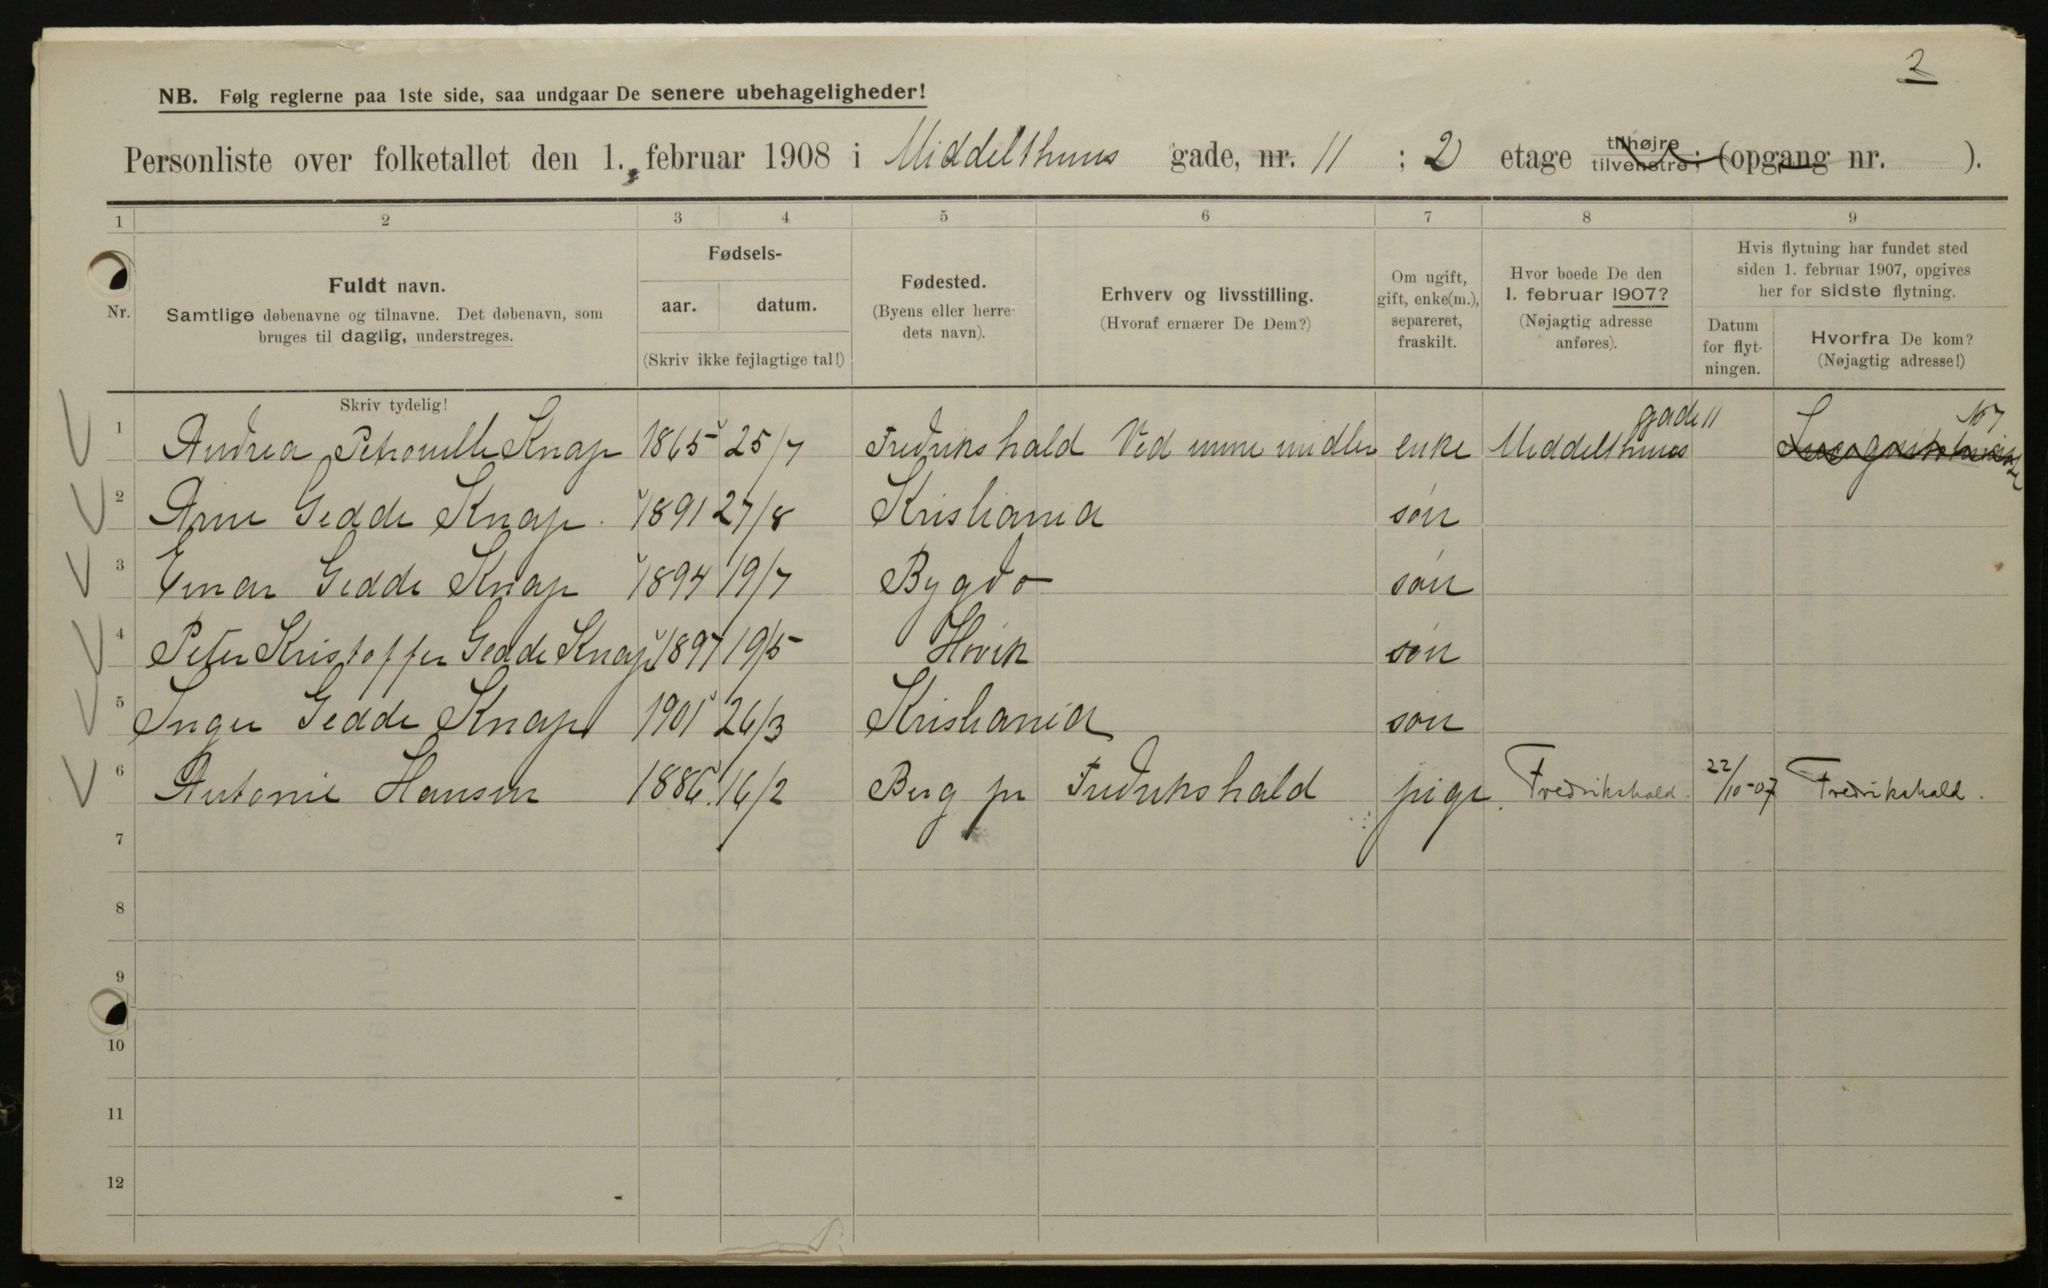 2
NB. Følg reglerne paa 1ste side, saa undgaar De senere ubehageligheder!
Personliste over folketallet den 1. februar 1908 i Middelthuns gade, nr. 11 ; 2 etage tilhøjre tilvenstre; (opgang nr. ).
1 2 3 4 5 6 7 8 9
Nr.
Fuldt navn.
Samtlige døbenavne og tilnavne. Det døbenavn, som
bruges til daglig, understreges.
Skriv tydelig!
Fødsels-
aar. datum.
(Skriv ikke fejlagtige tal!)
Fødested.
(Byens eller herre-
dets navn).
Erhverv og livsstilling.
(Hvoraf ernærer De Dem?)
Om ugift,
gift, enke(m.),
separeret,
fraskilt.
Hvor boede De den
1. februar 1907?
(Nøjagtig adresse
anføres).
Hvis flytning har fundet sted
siden 1. februar 1907, opgives
her for sidste flytning.
Datum
for flyt-
ningen.
Hvorfra De kom?
(Nøjagtig adresse!)
1 Andrea Petronelle Knap 1865 25/7 Fredrikshald Ved mine midler enke Middelthuns gade 11
2 Arne Gedde Knap. 1891 27/8 Kristiania søn
3 Einar Gedde Knap 1894 19/7 Bygdø søn
4 Peter Kristoffer Gedde Knap 1897 19/5 Høvik søn
5 Inger Gedde Knap 1901 26/3 Kristiania søn
6 Antonie Hansen 1886. 16/2 Berg pr Fredrikshald pige. Fredrikshald. 22/10-07 Fredrikshald.
7
8
9
10
11
12